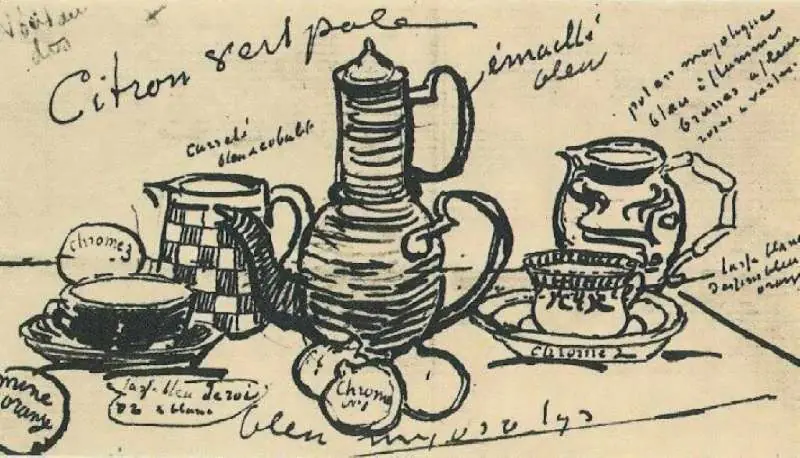 Citron vert pale
émaillé
bleu
carrelé
bleu de cobalt
pot en majolique
bleu à flammes
brunes
roses &
chrome 3
tasse blanc
dessins bleu
orang
chrome 2
Chrome
No 1
mine
orange
tasse bleu de roi
or & blanc
bleu myosotys